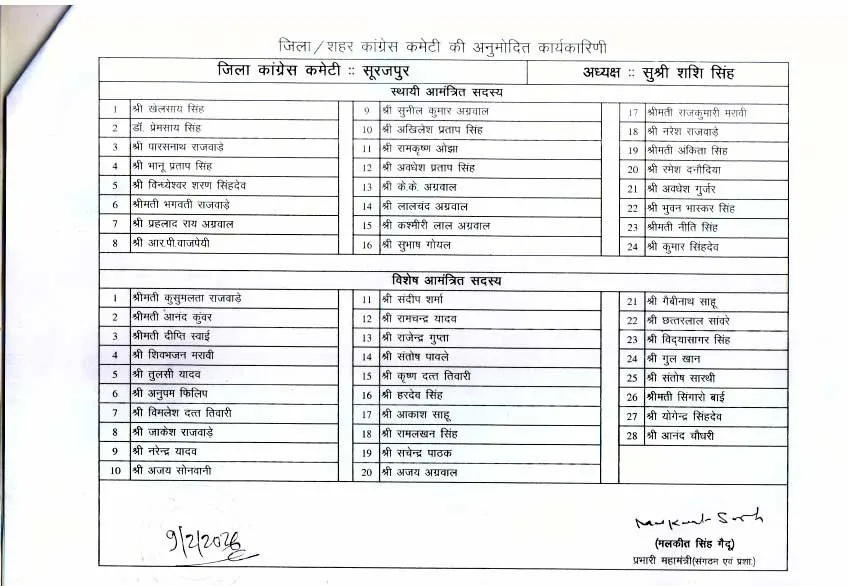 जिला/शहर कांग्रेस कमेटी की अनुमोदित कार्यकारिणी
जिला कांग्रेस कमेटी :: सूरजपुर अध्यक्ष :: सुश्री शशि सिंह
स्थायी आमंत्रित सदस्य
1 श्री खेलसाय सिंह
2 डॉ. प्रेमसाय सिंह
3 श्री पारसनाथ राजवाड़े
4 श्री भानू प्रताप सिंह
5 श्री विन्ध्येश्वर शरण सिंहदेव
6 श्रीमती भगवती राजवाड़े
7 श्री प्रहलाद राय अग्रवाल
8 श्री आर.पी.वाजपेयी
9 श्री सुनील कुमार अग्रवाल
10 श्री अखिलेश प्रताप सिंह
11 श्री रामकृष्ण ओझा
12 श्री अवधेश प्रताप सिंह
13 श्री के.के. अग्रवाल
14 श्री लालचंद अग्रवाल
15 श्री कश्मीरी लाल अग्रवाल
16 श्री सुभाष गोयल
17 श्रीमती राजकुमारी मरावी
18 श्री नरेश राजवाड़े
19 श्रीमती अंकिता सिंह
20 श्री रमेश दनौदिया
21 श्री अवधेश गुर्जर
22 श्री भुवन भास्कर सिंह
23 श्रीमती नीति सिंह
24 श्री कुमार सिंहदेव
विशेष आमंत्रित सदस्य
1 श्रीमती कुसुमलता राजवाड़े
2 श्रीमती आनंद कुंवर
3 श्रीमती दीप्ति स्वाई
4 श्री शिवभजन मरावी
5 श्री तुलसी यादव
6 श्री अनुपम फिलिप
7 श्री विमलेश दत्त तिवारी
8 श्री जाकेश राजवाड़े
9 श्री नरेन्द्र यादव
10 श्री अजय सोनवानी
11 श्री संदीप शर्मा
12 श्री रामचन्द्र यादव
13 श्री राजेन्द्र गुप्ता
14 श्री संतोष पावले
15 श्री कृष्ण दत्त तिवारी
16 श्री हरदेव सिंह
17 श्री आकाश साहू
18 श्री रामलखन सिंह
19 श्री सचेन्द्र पाठक
20 श्री अजय अग्रवाल
21 श्री गैबीनाथ साहू
22 श्री छत्तरलाल सांवरे
23 श्री विद्यासागर सिंह
24 श्री गुल खान
25 श्री संतोष सारथी
26 श्रीमती सिंगारो बाई
27 श्री योगेन्द्र सिंहदेव
28 श्री आनंद चौधरी
9/2/2026
(मलकीत सिंह गैदू)
प्रभारी महामंत्री(संगठन एवं प्रशा.)